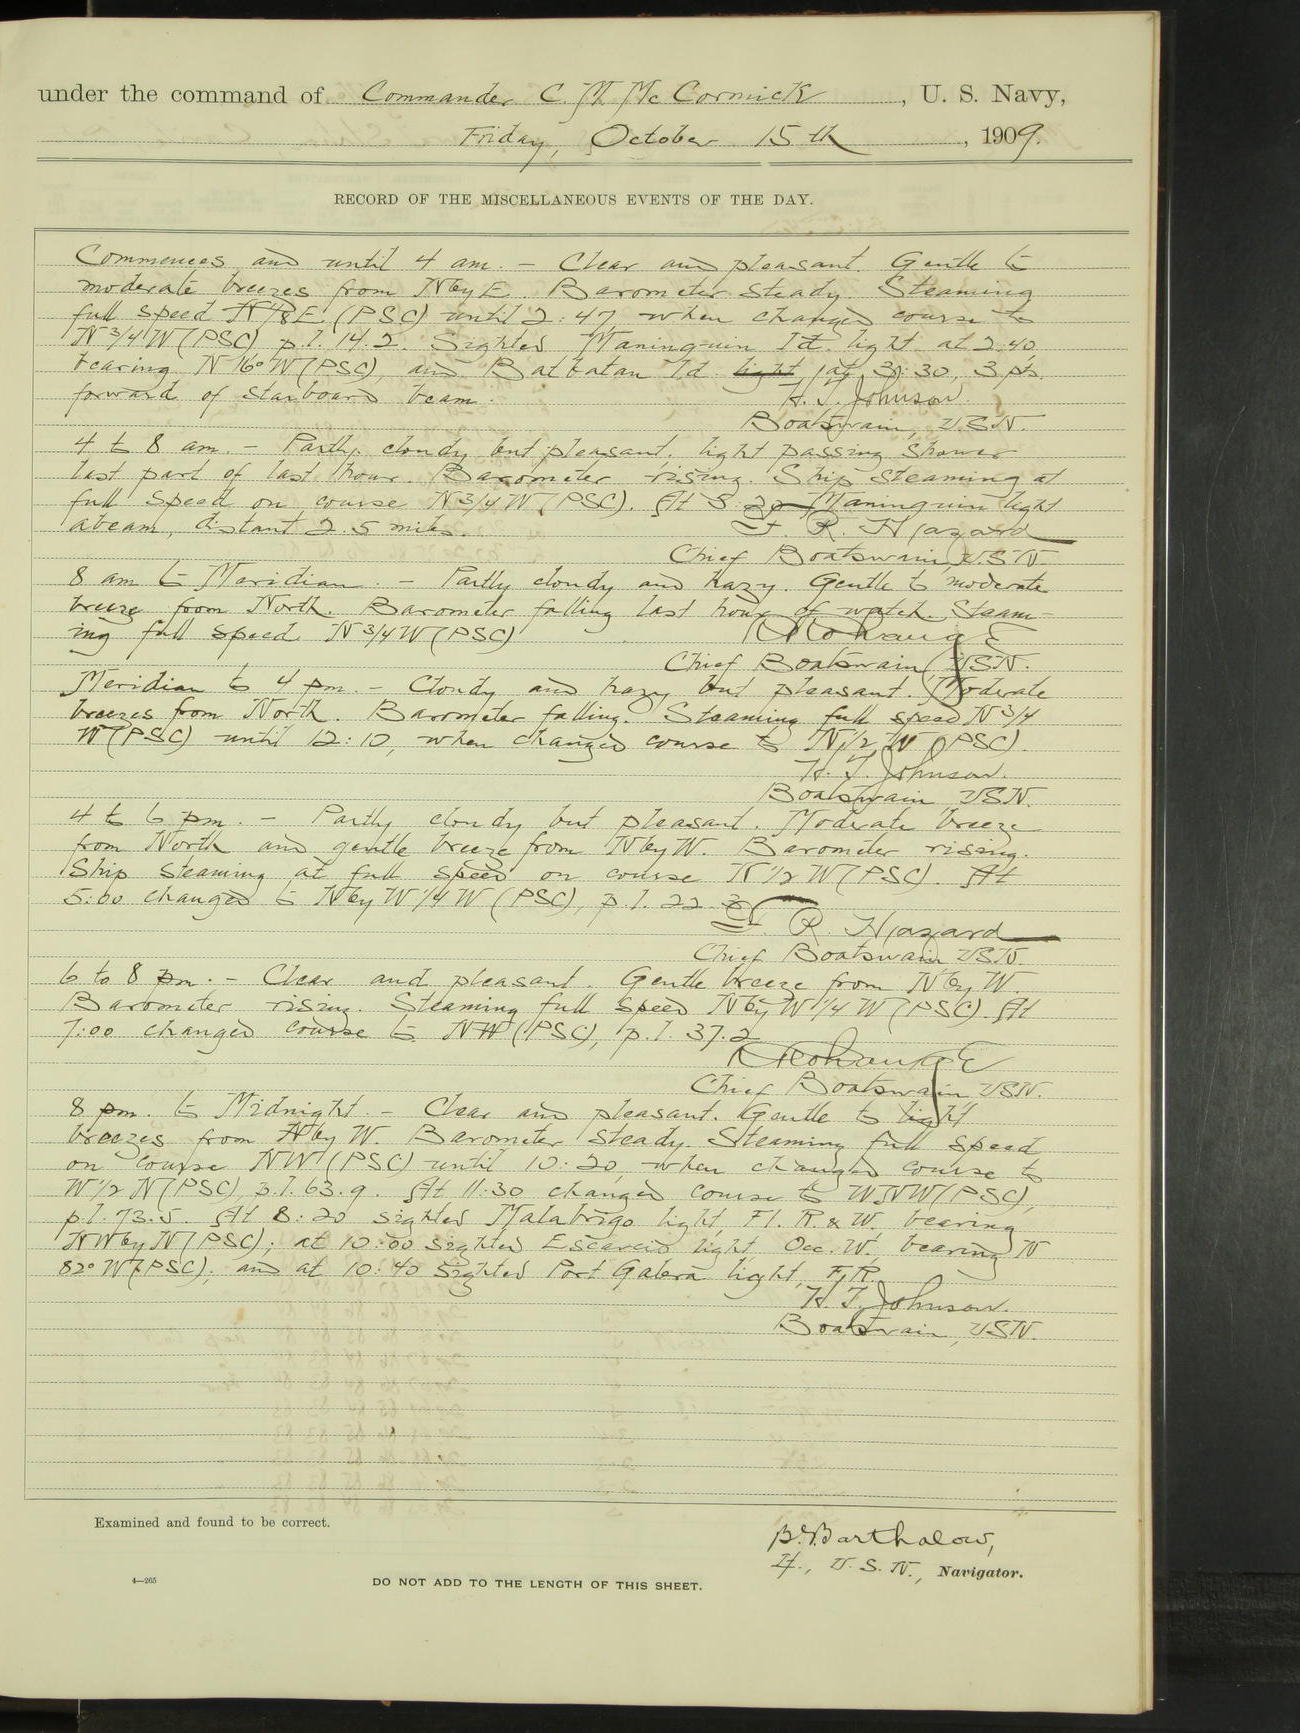 under the command of Commander C. M. McCormick, U. S. Navy,
Friday, October 15th, 1909.
RECORD OF THE MISCELLANEOUS EVENTS OF THE DAY.
Commences and until 4 am. - Clear and pleasant. Gentle to
moderate breezes from NbyE. Barometer steady. Steaming
full speed N1/8E (PSC) until 2:47, when changed course to
N3/4W (PSC) p.l. 14.2. Sighted Maninguin Id. light at 2:40,
bearing N16°W (PSC), and Batbatan Id. light at 3:30, 3 pts.
forward of starboard beam. H. T. Johnson.
Boatswain, USN.
4 to 8 am. - Partly cloudy but pleasant, light passing shower
last part of last hour. Barometer rising. Ship steaming at
full speed on course N3/4W (PSC). At 5 Maninguin light
abeam, distant 2.5 miles. F. R. Hazard
Chief Boatswain, USN.
8 am to Meridian. - Partly cloudy and hazy. Gentle to moderate
breeze from North. Barometer falling last hour of watch. Steam-
ing full speed N3/4W (PSC)
Chief Boatswain, USN.
Meridian to 4 pm. - Cloudy and hazy but pleasant. Moderate
breezes from North. Barometer falling. Steaming full speed N3/4
W (PSC) until 12:10, when changed course to N1/2W (PSC).
H. T. Johnson.
Boatswain, USN.
4 to 6 pm. - Partly cloudy but pleasant. Moderate breeze
from North and gentle breeze from NbyW. Barometer rising.
Ship steaming at full speed on course N1/2W (PSC). At
5:00 changed to NbyW1/4W (PSC), p.l. 22.
F. R. Hazard
Chief Boatswain USN.
6 to 8 pm. - Clear and pleasant. Gentle breeze from NbyW.
Barometer rising. Steaming full speed NbyW1/4W (PSC). At
7:00 changed course to NW (PSC), p.l. 37.2
Chief Boatswain USN.
8 pm. to Midnight. - Clear and pleasant. Gentle to light
breezes from NbyW. Barometer steady. Steaming full speed
on course NW (PSC) until 10:20, when changed course to
W1/2N (PSC), p.l. 63.9. At 11:30 changed course to WNW (PSC),
p.l. 73.5. At 8:20 sighted Malabrigo light, Fl. R. & W. bearing
NWbyN (PSC); at 10:00 sighted Escarceo light, Occ. W. bearing N
82° W (PSC); and at 10:40 sighted Port Galera light, F.R.
H. T. Johnson.
Boatswain, USN.
Examined and found to be correct.
B. Barthalow,
Lt., U. S. N., Navigator.
4—265
DO NOT ADD TO THE LENGTH OF THIS SHEET.